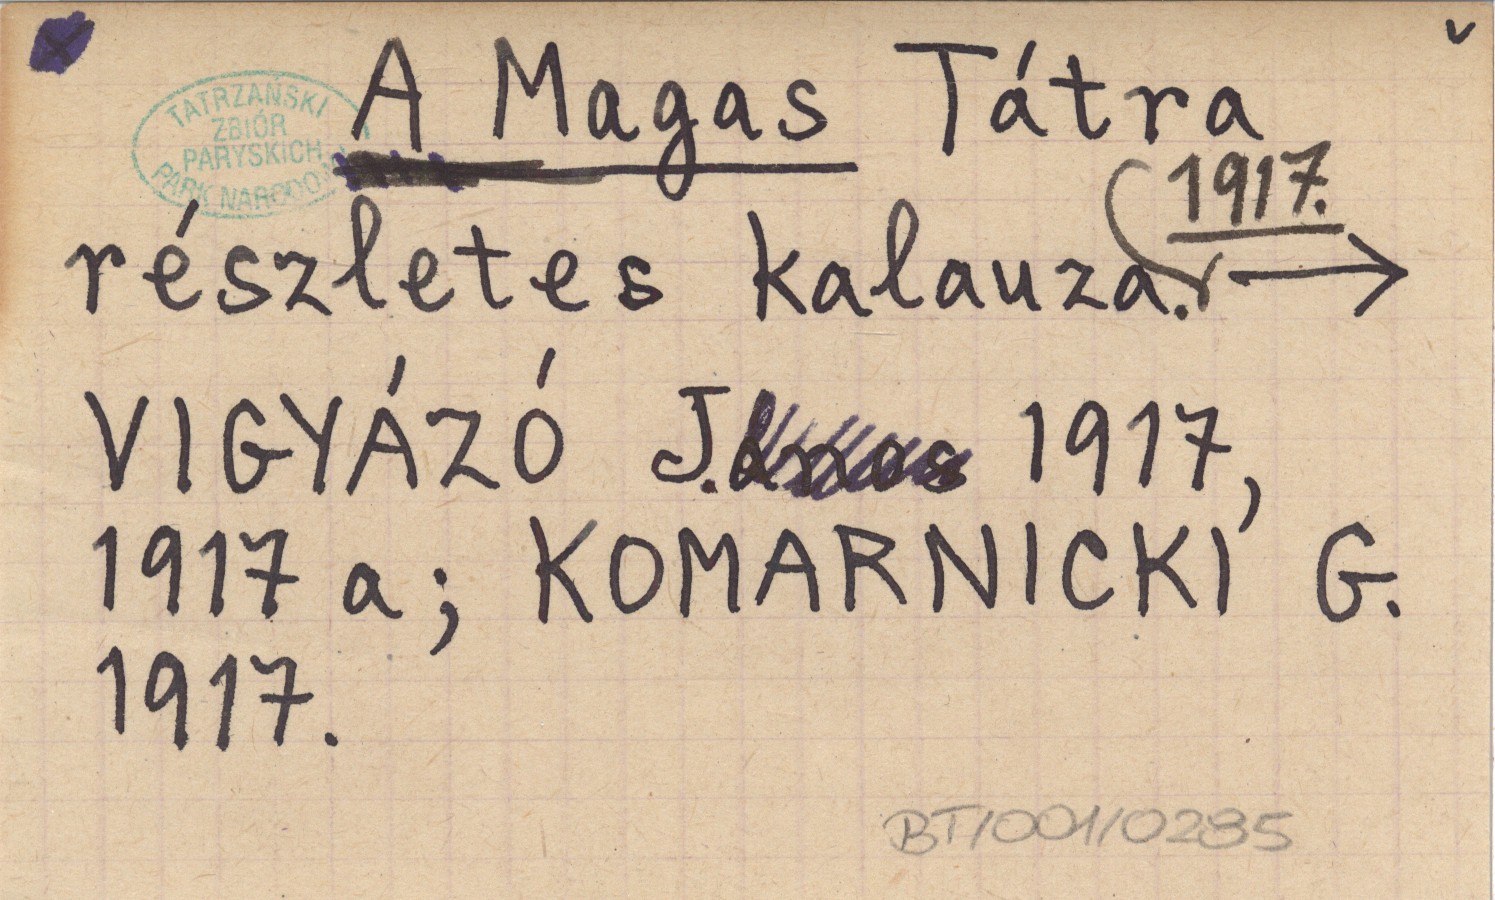 v
A Magas Tátra
TATRZAŃSKI
ZBIÓR
PARYSKICH
PARK NARODO
1917.
részletes kalauza. →
VIGYÁZÓ János 1917,
1917 a; KOMARNICKI G.
1917.
BT/001/0285